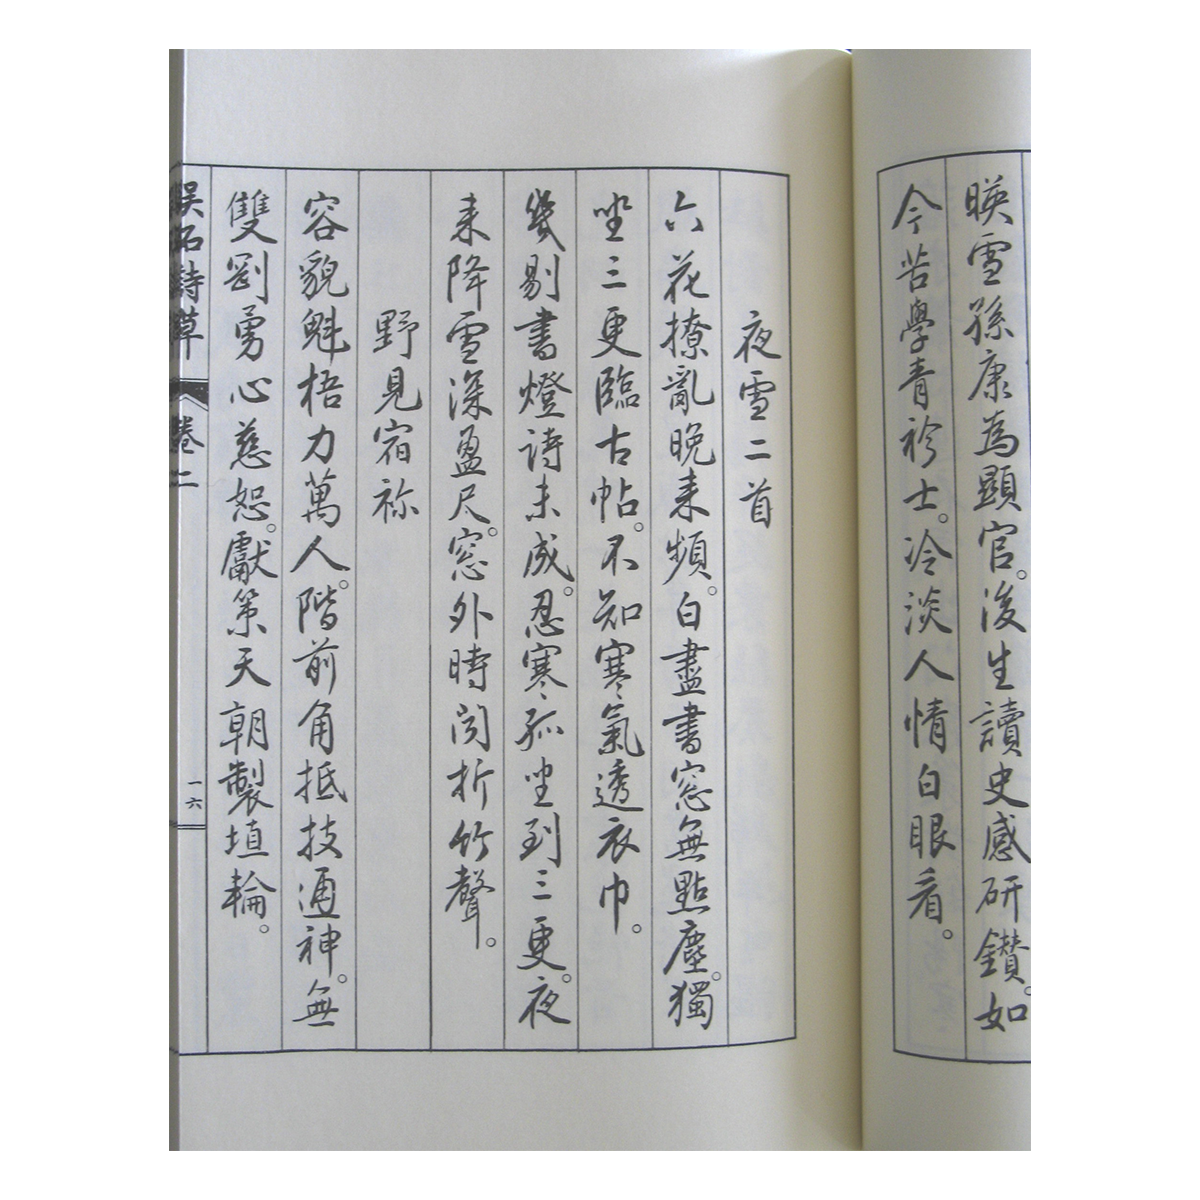 暎雪孫康為顯官。後生讀史感研鑽。如
今苦學青衿士。冷淡人情白眼看。
夜雪二首
六花撩亂晚来頻。白盡書窓無點塵。獨
坐三更臨古帖。不知寒氣透衣巾。
幾剔書燈詩未成。忍寒孤坐到三更。夜
来降雪深盈尺。窓外時聞折竹聲。
野見宿祢
容貌魁梧力萬人。階前角抵技通神。無
雙剛勇心慈恕。獻策天朝製埴輪。
詩草
卷二
一六